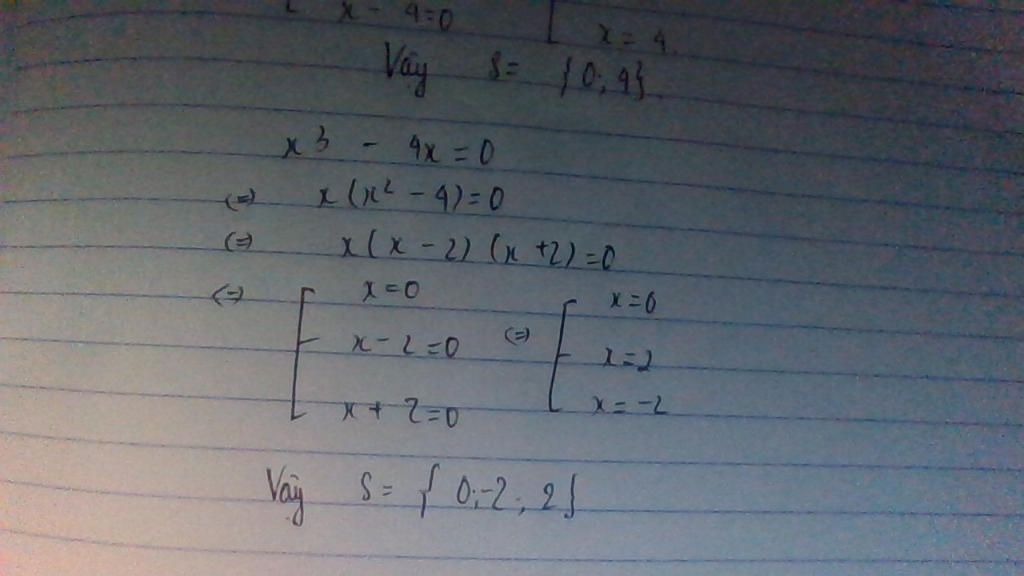 x - 4=0 [ x = 4.
Vậy S= {0; 4}.
x³ - 4x = 0
(=) x(x² - 4)=0
(=) x(x - 2)(x + 2)=0
(=) [ x=0 (=) [ x=0
x - 2=0 x=2
x + 2=0 x=-2
Vậy S= { 0;-2; 2}